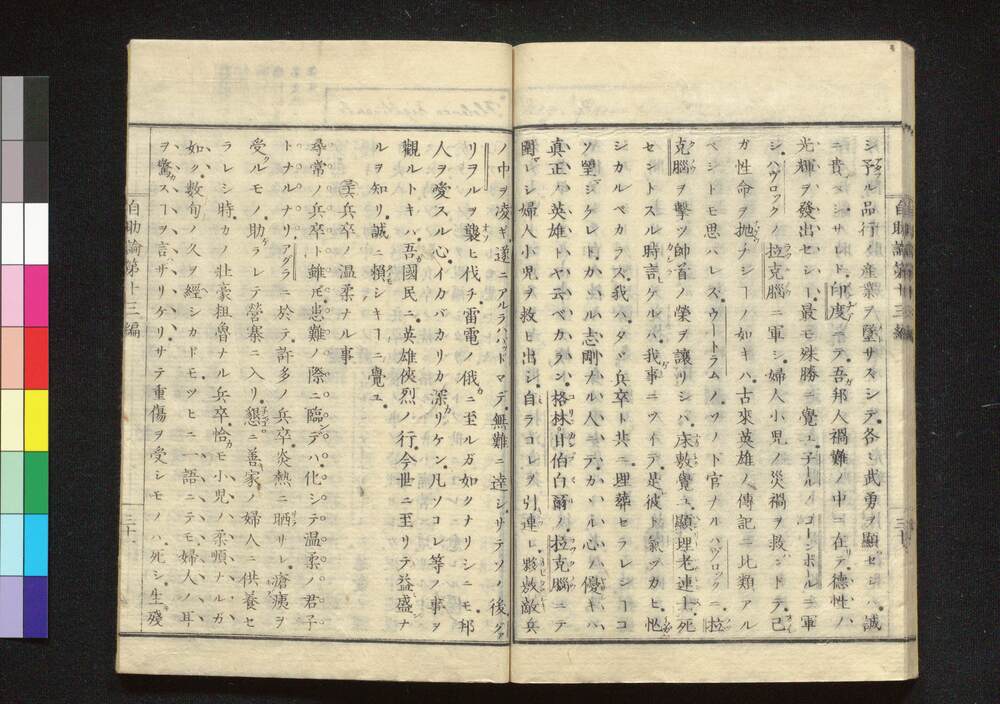 シ予アル品行ノ産業ヲ墜サスシテ各〻武勇ヲ顯ハセシハ誠
ニ貴ベシサレド印度ニテ吾邦人禍難ノ中ニ在リテ德性ノ
光輝ヲ發出セシハ最モ殊勝ニ覺ユ子ールノコーンポールニ軍
シハヴロックノ拉克腦ニ軍シ婦人小兒ノ災禍ヲ救ハントテ己
ガ性命ヲ抛ナシヿノ如キハ古來英雄ノ傳記ニ比類アル
ベシトモ思ハレズウートラムノソノ下官ナルハヴロックニ拉
克腦ヲ擊ツ帥首ノ榮ヲ讓リシハ床敷覺ユ顯理老連士死
セントスル時言ケルハ我事ニツイテハ是彼ト氣ヅカヒ
シカルベカラス我ハタヾ兵卒ト共ニ埋葬セラレンヿコ
ソ望シケレトカヽル志剛ナル人ニテカヽル心ノ優キハ
真正ノ英雄トヤ云ベカラン格林日伯白爾ノ拉克腦ニテ
圍レシ婦人小兒ヲ救ヒ出シ自ラコレヲ引連レ夥敷敵兵
ノ中ヲ凌ギ遂ニアルラハバッドマデ無難ニ達シサテソノ後グァ
リヲルヲ襲ヒ伐チ雷電ノ俄ニ至ルガ如クナリシニモ邦
人ヲ愛スル心イカバカリカ深リケンソコレ等ノ事ヲ
觀ルトキハ吾國民ニ英雄俠烈ノ行今世ニ至リテ益盛ナ
ルヲ知リ誠ニ頼シキヿニ覺ユ
兵卒ノ温柔ナル事
尋常ノ兵卒ト雖モ患難ノ際ニ臨デハ化シテ温柔ノ君子
トナルナリアグラニ於テ許多ノ兵卒炎熱ニ晒サレ瘡痍ヲ
受クルモノ助ラレテ營寨ニ入リ懇ニ善家ノ婦人ニ供養セ
ラレシ時カノ壯豪担魯ナル兵卒恰モ小兒ノ柔順ナルガ
如ク數旬ノ久ヲ經シカドモツヒニ一語ニテモ婦人ノ耳
ヲ驚スヿヲ言サリケリサテ重傷ヲ受シモノハ死シ生殘
自助論第十三編
三十
自助論第十三編
三十